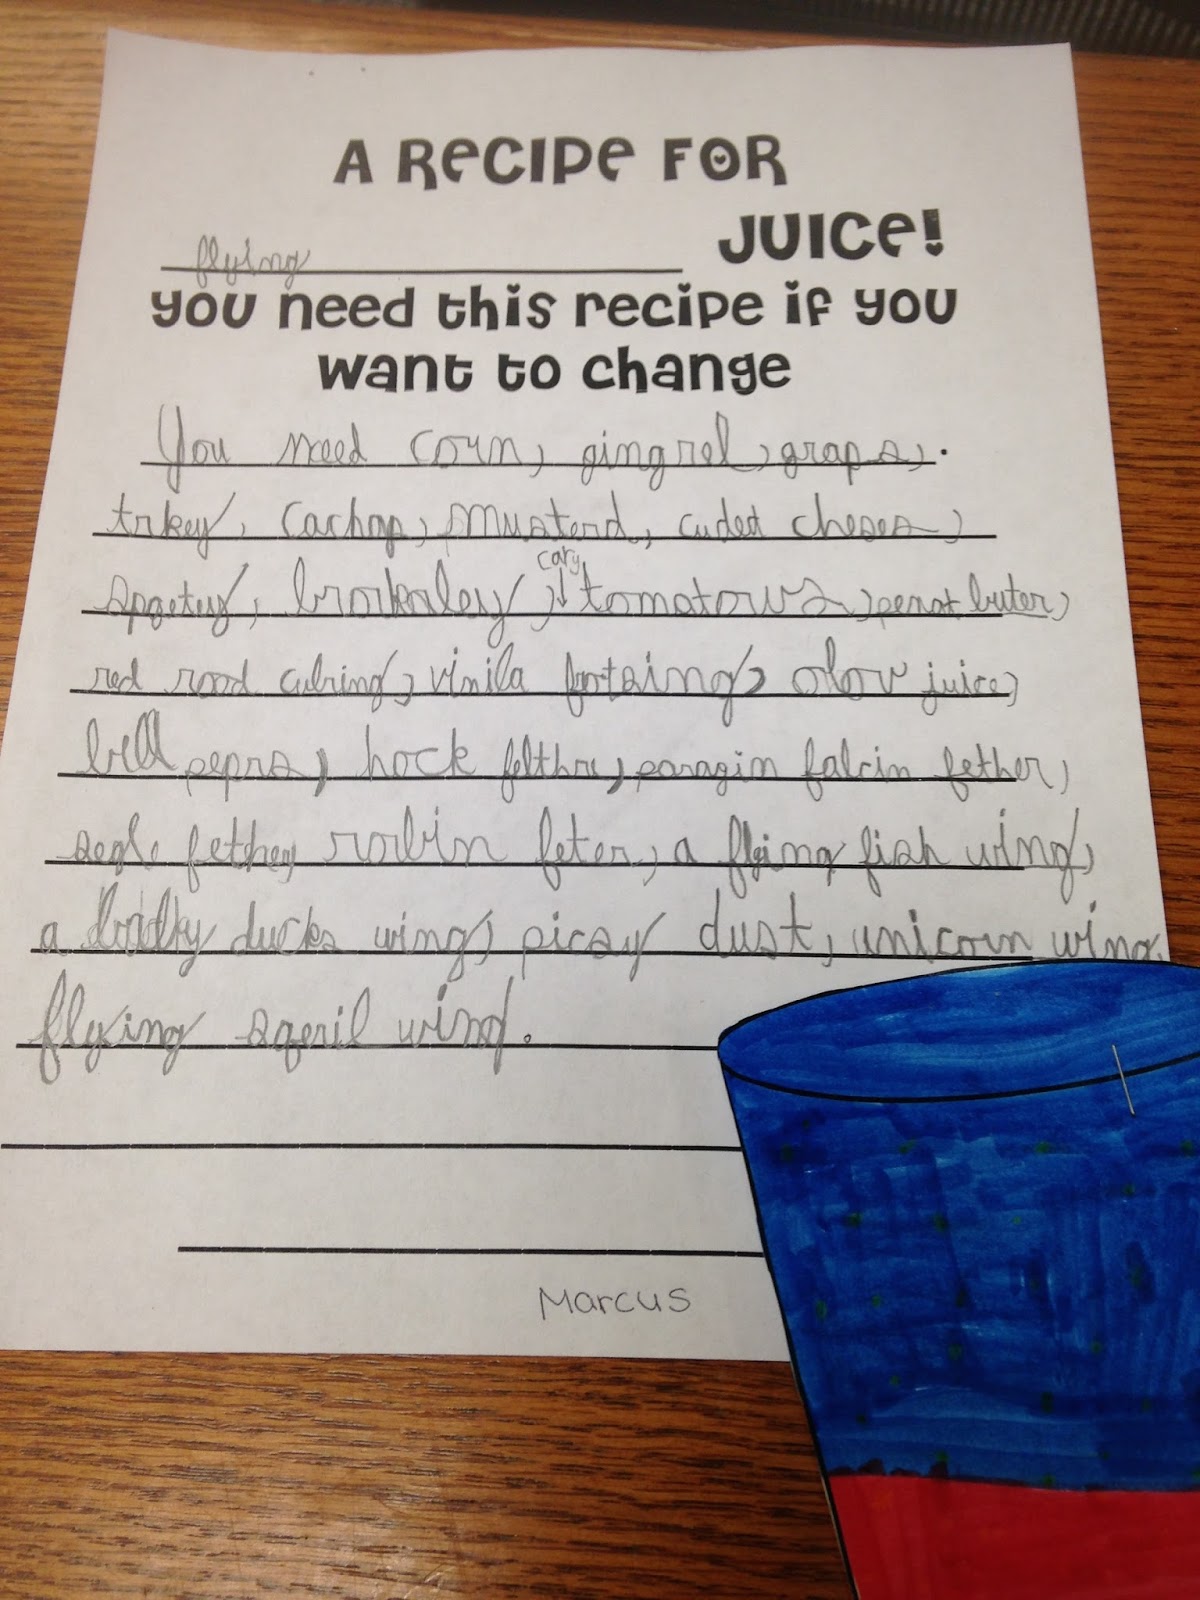 A RECIPE FOR
flying JUICE!
you need this recipe if you
want to change
You need corn, gingrel, graps,.
trkey, Cachap, musterd, cuded cheses,
cary
spgetey, brokoley, ↓ tomatows, penat buter,
red rood culring, vinila frotsing, olov juice,
bell peprs, hock felthre, paragin falcin fether,
fether, robin feter, a flying fish wing,
a ducks wing, picsy dust, unicorn wing,
flying sqeril wing.
Marcus